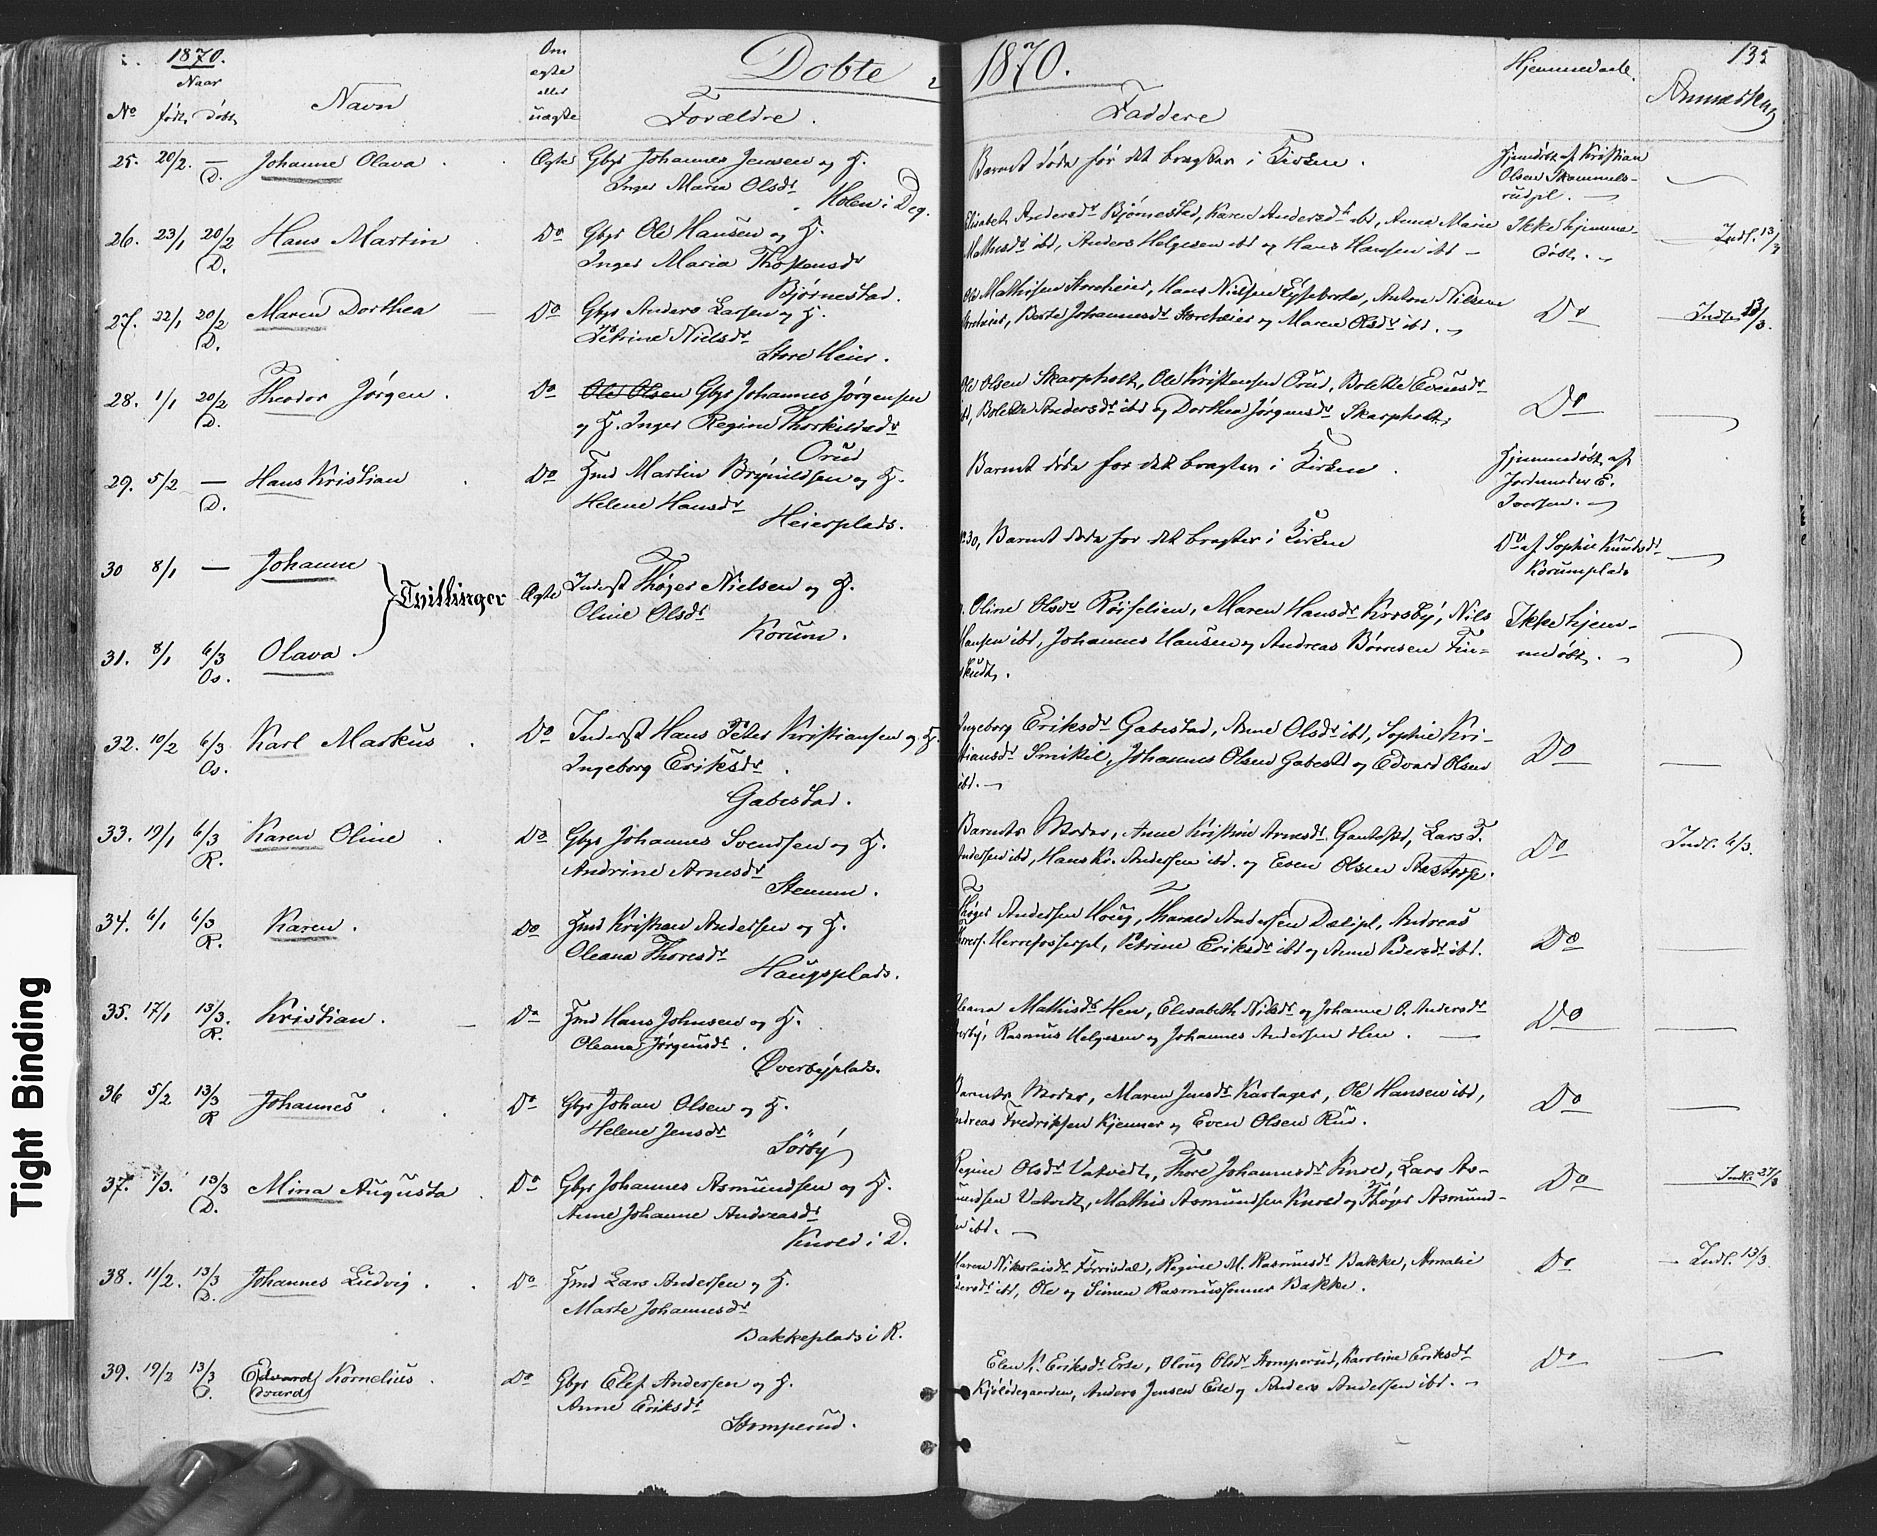 1870.
Døbte
1870.
135
Naar
Om ægte eller uægte
Hjemmedøbt.
No født, døbt, Navn
Forældre.
Faddere
25. 20/2. — D. Johanne Olava. Ægte Gbr Johannes Jensen og H.
Inger Maria Olsdr
Holen i Deg.
Barnet døde før det bragtes i Kirken.
Hjemdøbt af Kristian
Olsen Skammels-
rudpl.
26. 23/1 20/2 D. Hans Martin Do Gbr Ole Hansen og H.
Inger Maria Thostensdr
Bjørnestad.
Elisabeth Andersdr Bjørnestad, Karen Andersdr ibd, Anna Marie
Mathisdr ibd, Anders Helgesen ibd og Hans Hansen ibd —
Ikke hjemme-
døbt.
Indf. 13/3
27. 22/1 20/2 D. Maren Dorthea Do Gbr Anders Larsen og H.
Petrine Nielsdr
Store Heier.
Ole Mathisen Storeheier, Hans Nilsen, Anton Nilsen
Berte Johannesdr Storeheier og Maren Olsdr ibd.
Do
Indf. 13/3.
28. 1/1 20/2 D. Theodor Jørgen. Do Ole Olsen Gbr Johannes Jørgensen
og H. Inger Regine Thorkildsdr
Orud
Ole Olsen Skarpholt, Ole Kristensen Orud, Bolette Evensdr
ibd, Bolette Andersdr ibd og Dorthea Jørgensdr Skarpholt.
Do
29. 5/2 — D. Hans Kristian Do Hmd Martin Brynildsen og H.
Helene Hansdr
Heierplads.
Barnet døde før det bragtes i Kirken.
Hjemmedøbt af
Jordemoder E.
Iversen.
30 8/1 — Johanne
Tvillinger Ægte Inderst Thøger Nielsen og H.
Oline Olsdr
Korum.
No. 30, Barnet døde før det bragtes i Kirken
Do af Sophie Knudsdr
Korumplads
31. 8/1 6/3 Os. Olava.
Oline Olsdr Røiselien, Maren Hansdr Krosby, Nils
Hansen ibd, Johannes Hansen og Andreas Børresen Fin-
skudt.
Ikke hjem-
medøbt.
32. 10/2 6/3 Os. Karl Markus. Do Inderst Hans Peter Kristiansen og H.
Ingeborg Eriksdr.
Gabestad.
Ingeborg Eriksdr Gabestad, Anne Olsdr ibd, Sophie Kri-
stiansdr Smikil, Johannes Olsen Gabestd og Edvard Olsen
ibd.
Do
33. 19/1 6/3 R. Karen Oline. Do Gbr Johannes Svendsen og H.
Andrine Arnesdr
Stemme.
Barnets Moder, Anne Kristine Arnesdr, Lars T.
Andersen ibd, Hans Kr. Andersen ibd. og Even Olsen Aastorp.
Do
Indf. 6/3.
34. 6/1 6/3 R. Karen. Do Hmd Kristian Andersen og H.
Oleana Thoresdr
Haugsplads.
Thøger Andersen Houg, Tharald Andersen Dælipl, Andreas
Herrefosserpl, Petrine Eriksdr ibd og Anne Pedersdr ibd.
Do
35. 17/1 13/3. R. Kristian. Do Hmd Hans Johnsen og H.
Oleana Jørgensdr.
Øverbyplads.
Oleana Mathisdr Hen, Elisabeth Nilsdr og Johanne O. Andersdr
Øverby, Rasmus Helgesen og Johannes Andersen Hen.
Do
36 5/2 13/3 R Johannes. Do Gbr Johan Olsen og H.
Helene Jensdr
Sørby
Barnets Moder, Maren Jensdr Kartager, Ole Hansen ibd,
Andreas Fredriksen Kjenner og Even Olsen Rud.
Do
37. 7/3. 13/3 D. Mina Augusta. Do Gbr Johannes Asmundsen og H.
Anne Johanne Andreasdr
Knold i D.
Regine Olsdr Vatvedt, Thore Johannesdr Knold, Lars As-
mundsen Vatvedt, Mathis Asmundsen Knold og Thøger Asmund-
sen ibd.
Do
Indf. 27/3
38. 11/2. 13/3 D. Johannes Ludvig. Do Hmd Lars Andersen og H.
Marte Johannesdr
Bakkeplads i R.
Maren Nikolaisdr Førrisdal, Regine M. Rasmusdr Bakke, Amalie
Pedersdr ibd, Ole og Simen Rasmussønner Bakke.
Do
Indf. 13/3
39. 19/2 13/3 D. Edvard Kornelius. Do Gbr Elef Andersen og H.
(Edvard)
Anne Eriksdr
Stomperud.
Elen K. Eriksdr Ese, Oloug Olsdr Stomperud, Karoline Eriksdr
Kjølidegaarden, Anders Jensen Ese og Anders Andersen ibd.
Do
Tight Binding